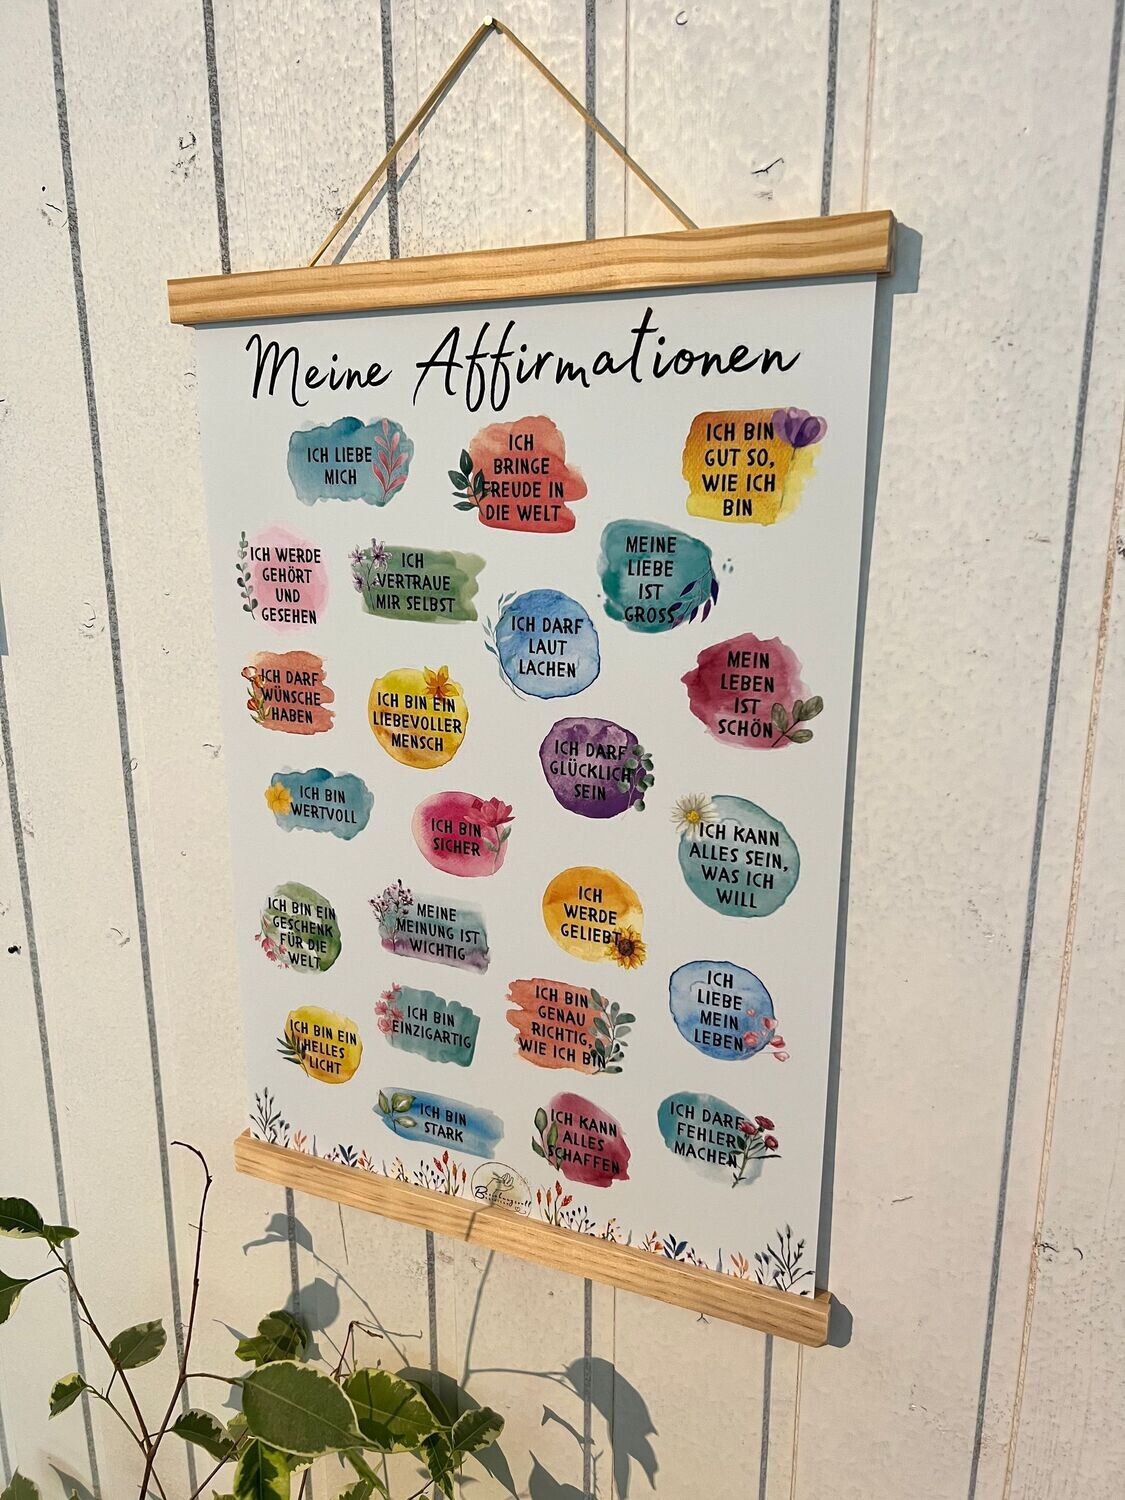 Meine Affirmationen
ICH LIEBE
MICH
ICH
BRINGE
FREUDE IN
DIE WELT
ICH BIN
GUT SO,
WIE ICH
BIN
ICH WERDE
GEHÖRT
UND
GESEHEN
ICH
VERTRAUE
MIR SELBST
MEINE
LIEBE
IST
GROSS
ICH DARF
LAUT
LACHEN
ICH DARF
WÜNSCHE
HABEN
ICH BIN EIN
LIEBEVOLLER
MENSCH
MEIN
LEBEN
IST
SCHÖN
ICH DARF
GLÜCKLICH
SEIN
ICH BIN
WERTVOLL
ICH BIN
SICHER
ICH KANN
ALLES SEIN,
WAS ICH
WILL
ICH BIN EIN
GESCHENK
FÜR DIE
WELT
MEINE
MEINUNG IST
WICHTIG
ICH
WERDE
GELIEBT
ICH
LIEBE
MEIN
LEBEN
ICH BIN EIN
HELLES
LICHT
ICH BIN
EINZIGARTIG
ICH BIN
GENAU
RICHTIG,
WIE ICH BIN
ICH BIN
STARK
ICH KANN
ALLES
SCHAFFEN
ICH DARF
FEHLER
MACHEN